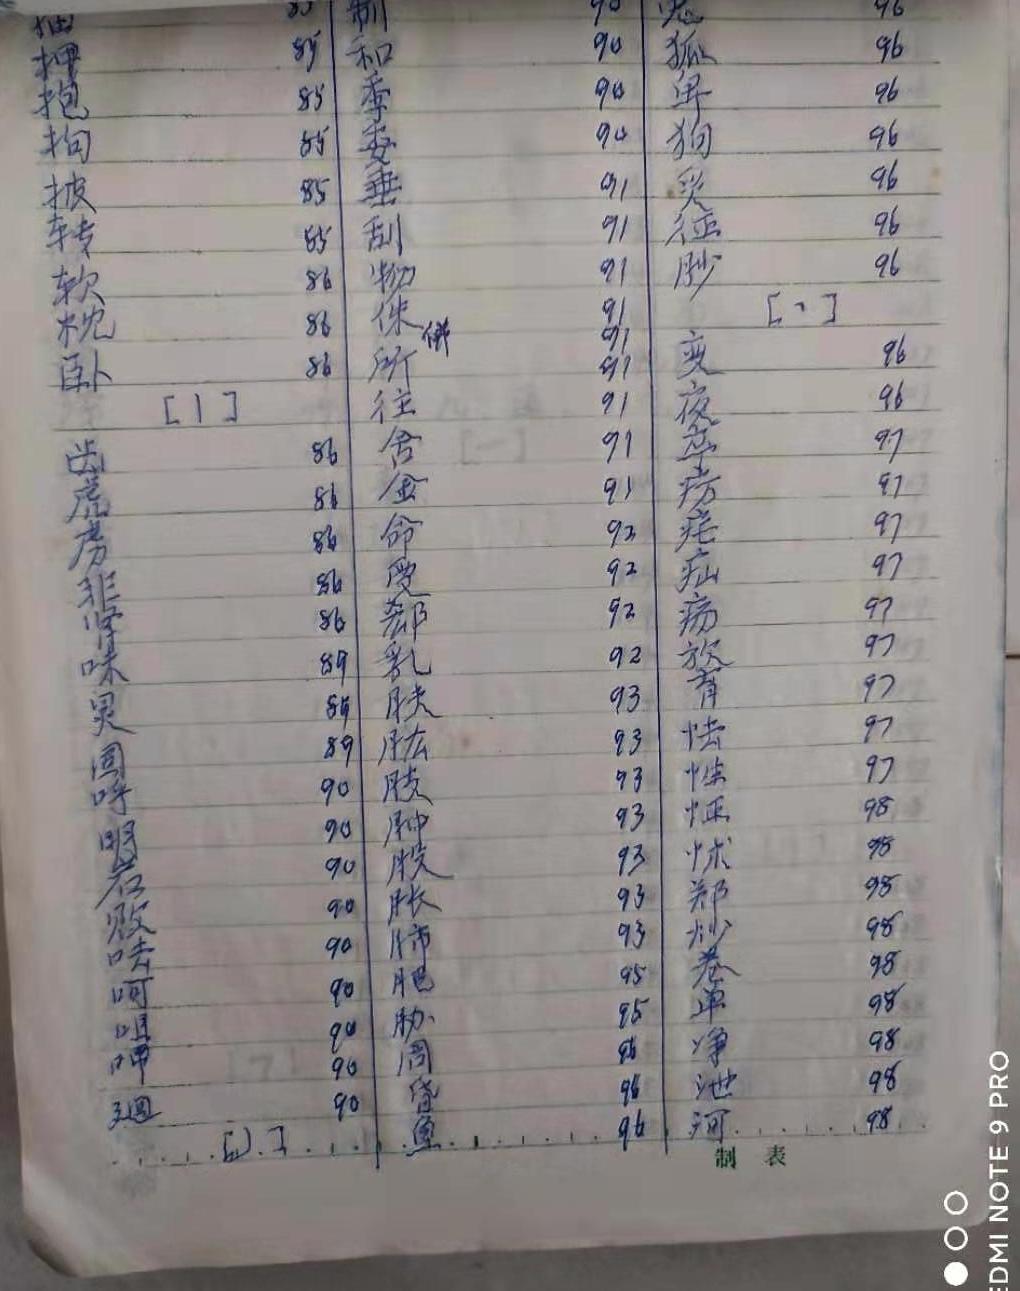 押 85
抱 85
拘 85
披 85
转 85
软 86
枕 86
卧 86
[丨]
齿 86
虎 86
虏 86
非 86
肾 86
味 89
炅 89
固 89
呼 90
明 90
岩 90
败 90
呿 90
呵 90
咀 90
呷 90
迴 90
[丿]
制 90
和 90
季 90
委 90
垂 91
刮 91
物 91
侏 91
91
所 91
往 91
舍 91
金 91
命 92
受 92
郄 92
乳 92
胠 93
肱 93
肢 93
肿 93
股 93
胀 93
肺 93
肥 95
胁 95
周 96
昏 96
鱼 96
兔 96
狐 96
卑 96
狗 96
炙 96
征 96
[丶]
变 96
夜 96
卒 97
疠 97
疟 97
疝 97
疡 97
放 97
育 97
怯 97
性 97
怔 98
怵 98
郑 98
炒 98
卷 98
单 98
净 98
池 98
河 98
制 表
EDMI NOTE 9 PRO